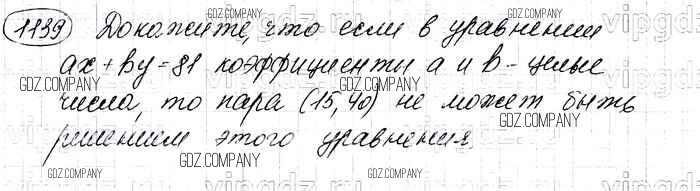 1139 Докажите, что если в уравнении
ax + by = 81 коэффициенты a и b - целые
числа, то пара (15; 40) не может быть
решением этого уравнения
GDZ.COMPANY
GDZ.COMPANY
GDZ.COMPANY
GDZ.COMPANY
GDZ.COMPANY
GDZ.COMPANY
GDZ.COMPANY
GDZ.COMPANY
GDZ.COMPANY